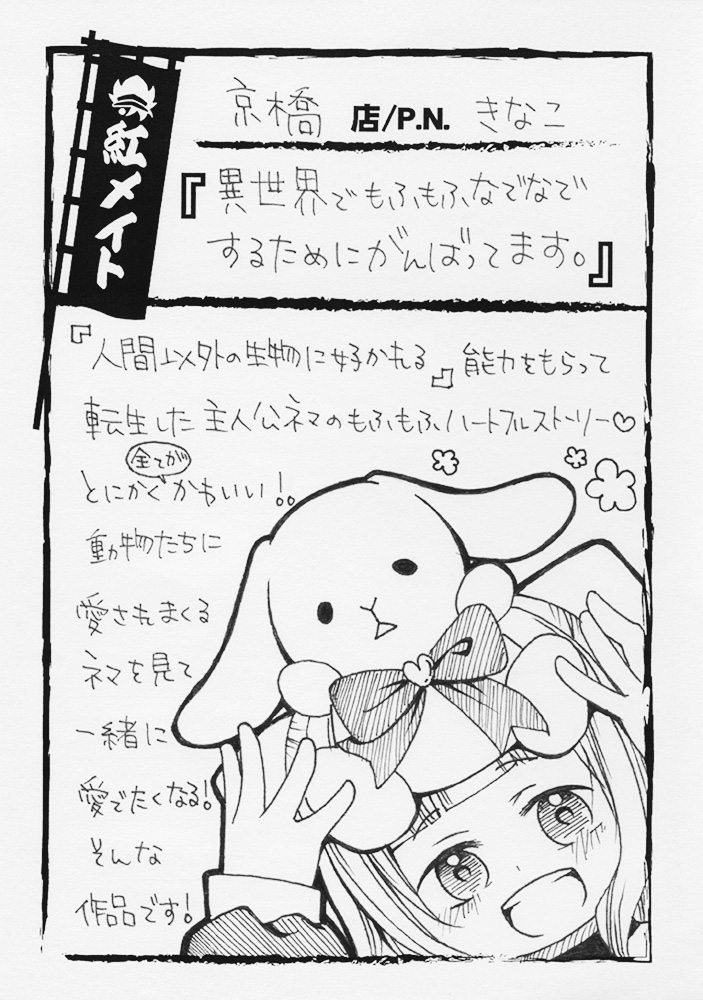 紅メイト
京橋 店/P.N. きなこ
『異世界でもふもふなでなで
するためにがんばってます。』
『人間以外の生物に好かれる』能力をもらって
転生した主人公ネマのもふもふハートフルストーリー♡
全てが
とにかくかわいい!!
動物たちに
愛されまくる
ネマを見て
一緒に
愛でたくなる!
そんな
作品です!